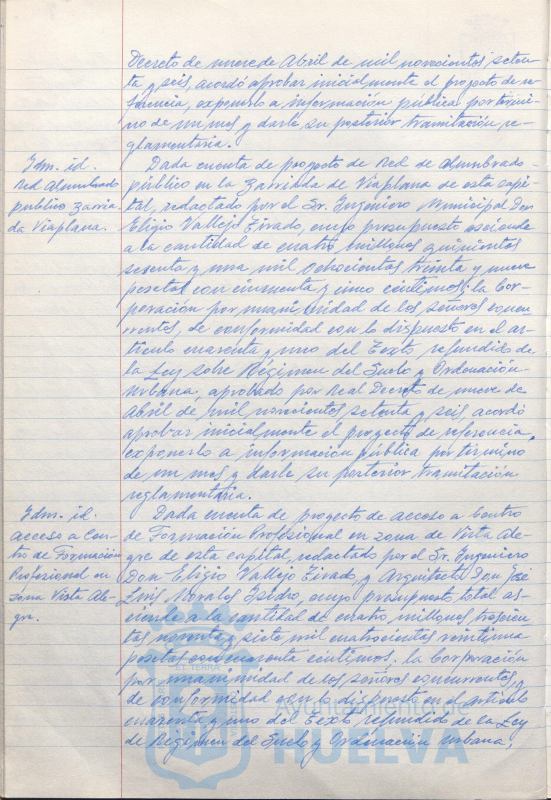 Decreto de nueve de Abril de mil novecientos seten-
ta y seis, acordó aprobar inicialmente el proyecto de re-
ferencia, exponerlo a información pública por térmi-
no de un mes y darle su posterior tramitación re-
glamentaria.
Idm. id.
Red Alumbrado
público Barria
da Viaplana.
Dada cuenta de proyecto de Red de Alumbrado
público en la Barriada de Viaplana de esta capi-
tal, redactado por el Sr. Ingeniero Municipal Don
Eligio Vallejo Tirado, cuyo presupuesto asciende
a la cantidad de cuatro millones quinientas
sesenta y una mil ochocientas treinta y nueve
pesetas con cincuenta y cinco céntimos; la Cor-
poración por unanimidad de los señores concu-
rrentes, de conformidad con lo dispuesto en el ar-
tículo cuarenta y uno del Texto refundido de
la Ley sobre Régimen del Suelo y Ordenación
Urbana, aprobado por Real Decreto de nueve de
Abril de mil novecientos setenta y seis, acordó
aprobar inicialmente el proyecto de referencia,
exponerlo a información pública por término
de un mes y darle su posterior tramitación
reglamentaria.
Idm. id.
acceso a Cen-
tro de Formación
Profesional en
zona Vista Ale-
gre.
Dada cuenta de proyecto de acceso a Centro
de Formación Profesional en zona de Vista Ale-
gre de esta capital, redactado por el Sr. Ingeniero
Don Eligio Vallejo Tirado, y Arquitecto Don José
Luis Morales Isidro, cuyo presupuesto total as-
ciende a la cantidad de cuatro millones trescien-
tas noventa y siete mil cuatrocientas veintiuna
pesetas con cuarenta céntimos. La Corporación
por unanimidad de los señores concurrentes, y
de conformidad con lo dispuesto en el artículo
cuarenta y uno del Texto refundido de la Ley
de Régimen del Suelo y Ordenación Urbana,
Ayuntamiento de
HUELVA